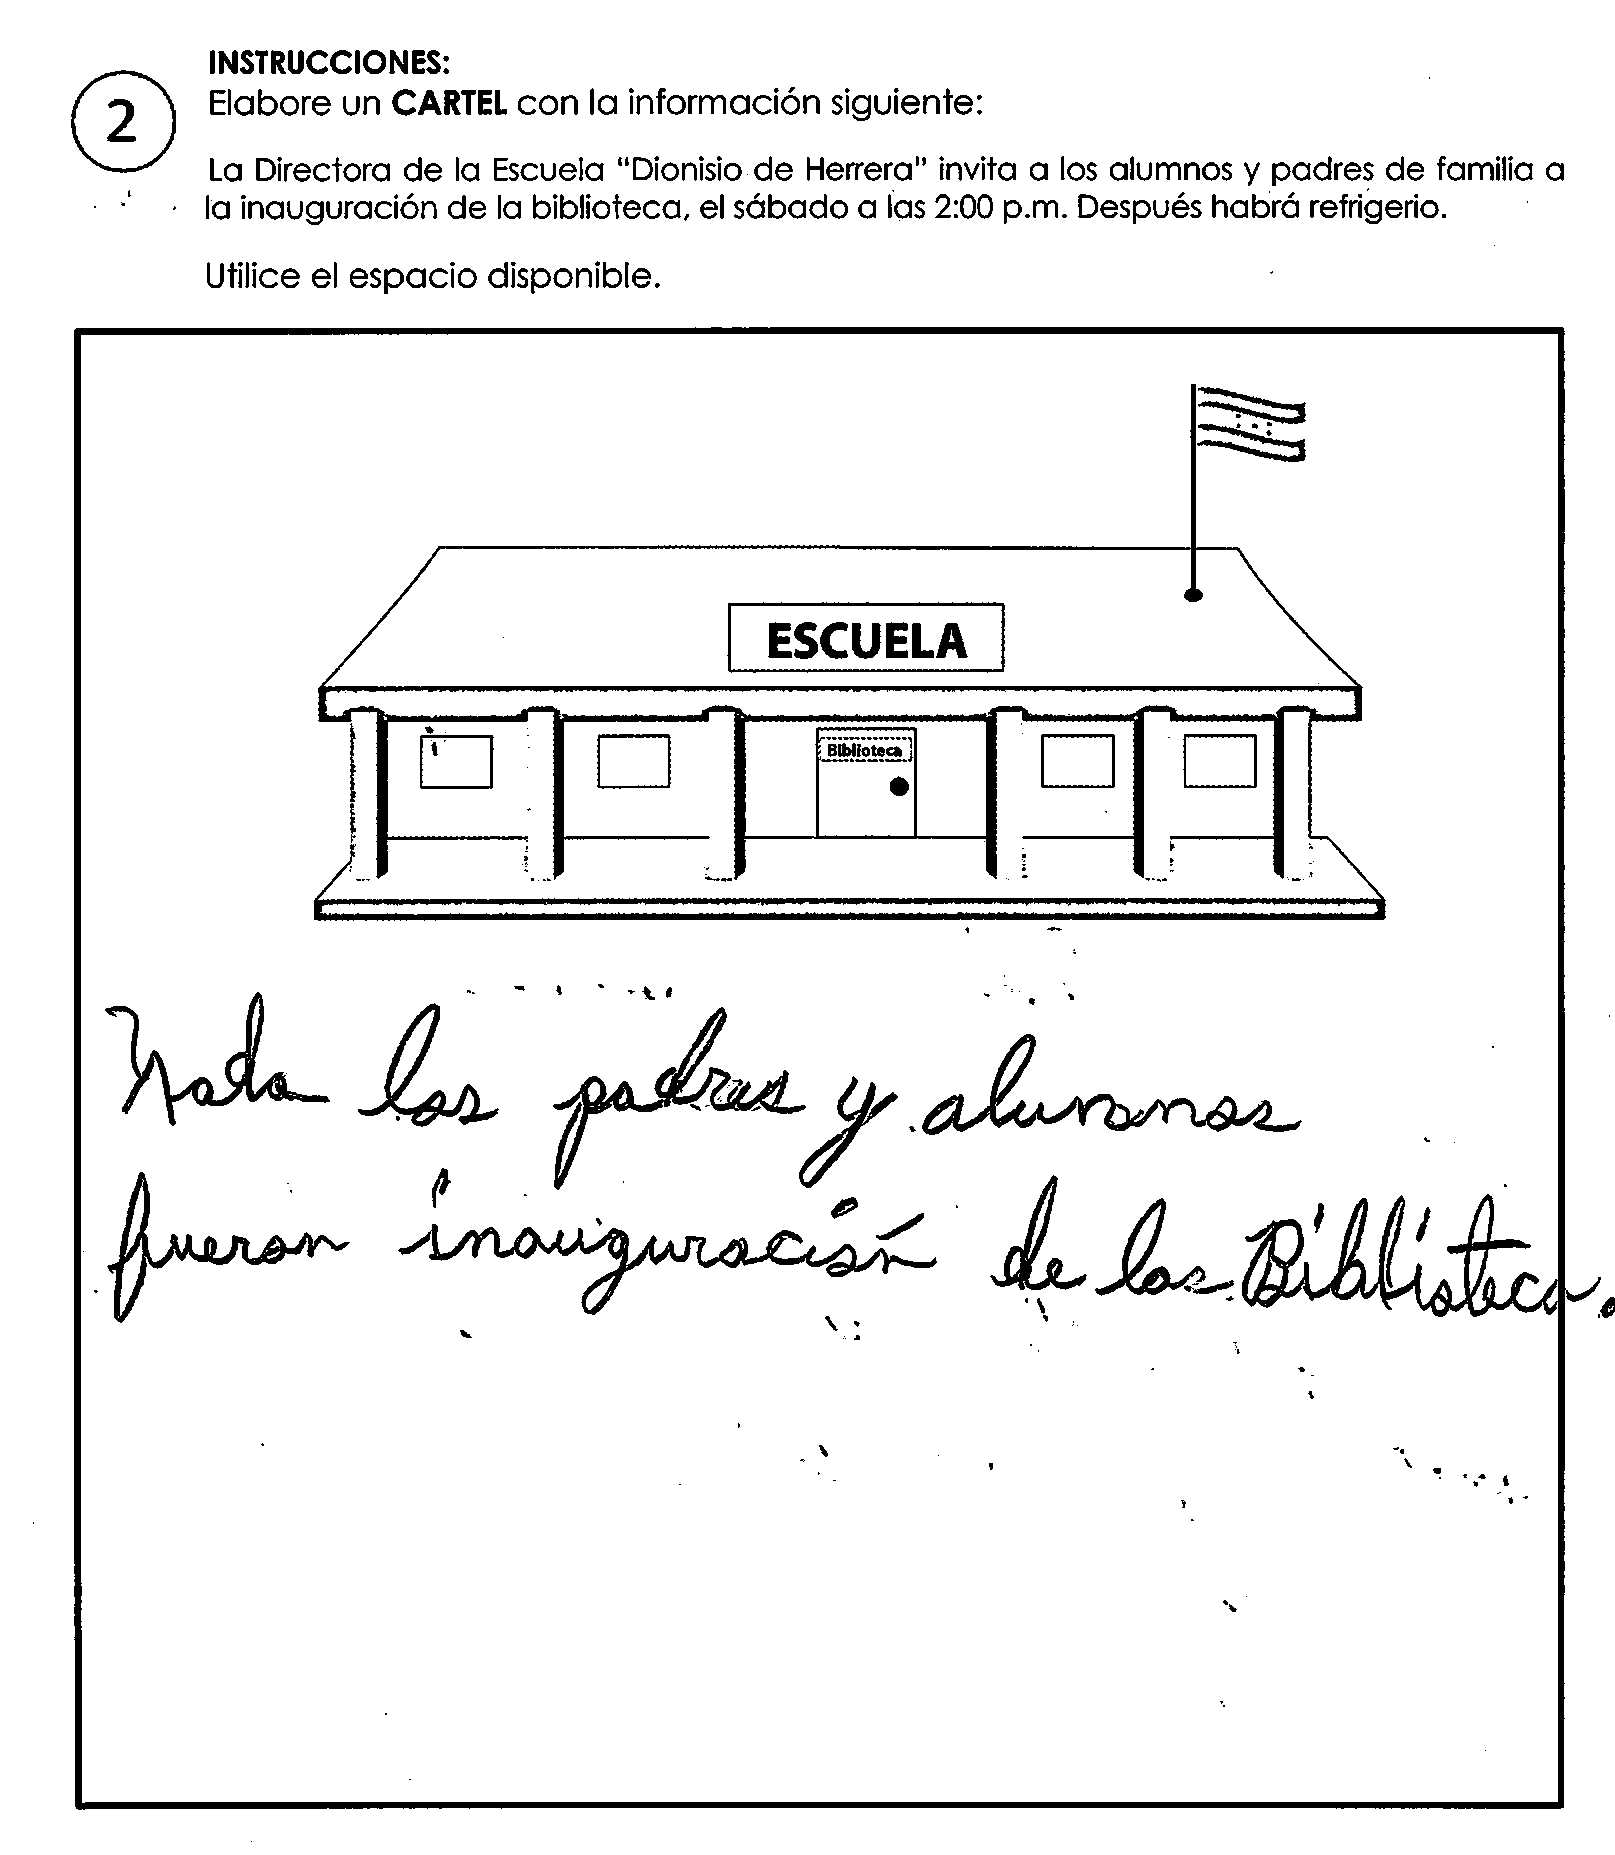 INSTRUCCIONES:
2
Elabore un CARTEL con la información siguiente:
La Directora de la Escuela "Dionisio de Herrera" invita a los alumnos y padres de familia a
la inauguración de la biblioteca, el sábado a las 2:00 p.m. Después habrá refrigerio.
Utilice el espacio disponible.
ESCUELA
Biblioteca
los padres y alumnos
fueron inauguración de las Biblioteca.